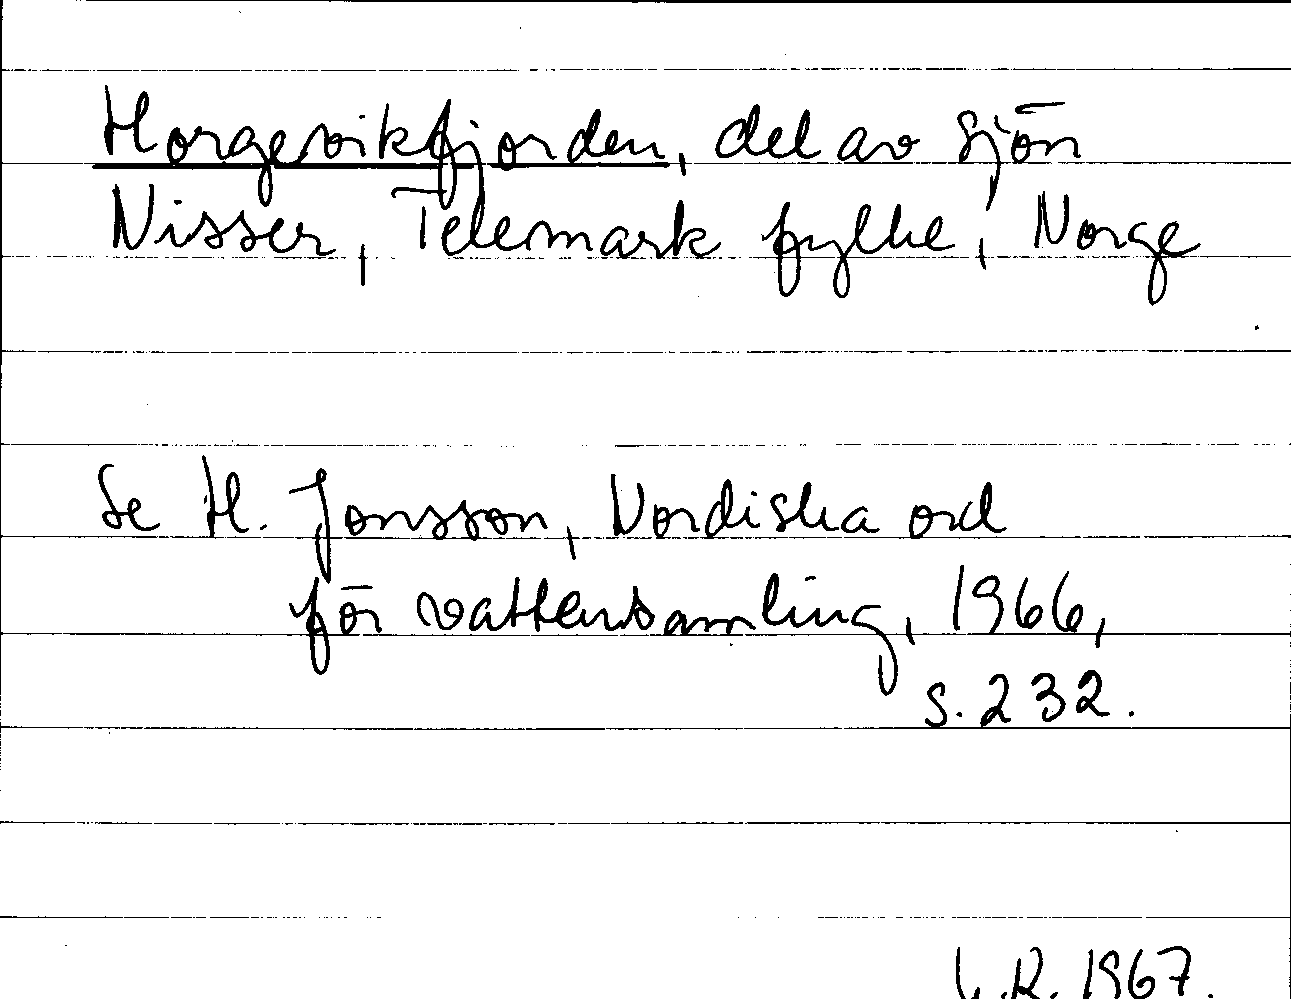 Horgevikfjorden, del av sjön
Nisser, Telemark fylke, Norge
Se H. Jonsson, Nordiska ord
för vattensamling, 1966,
s. 232.
R. 1967.